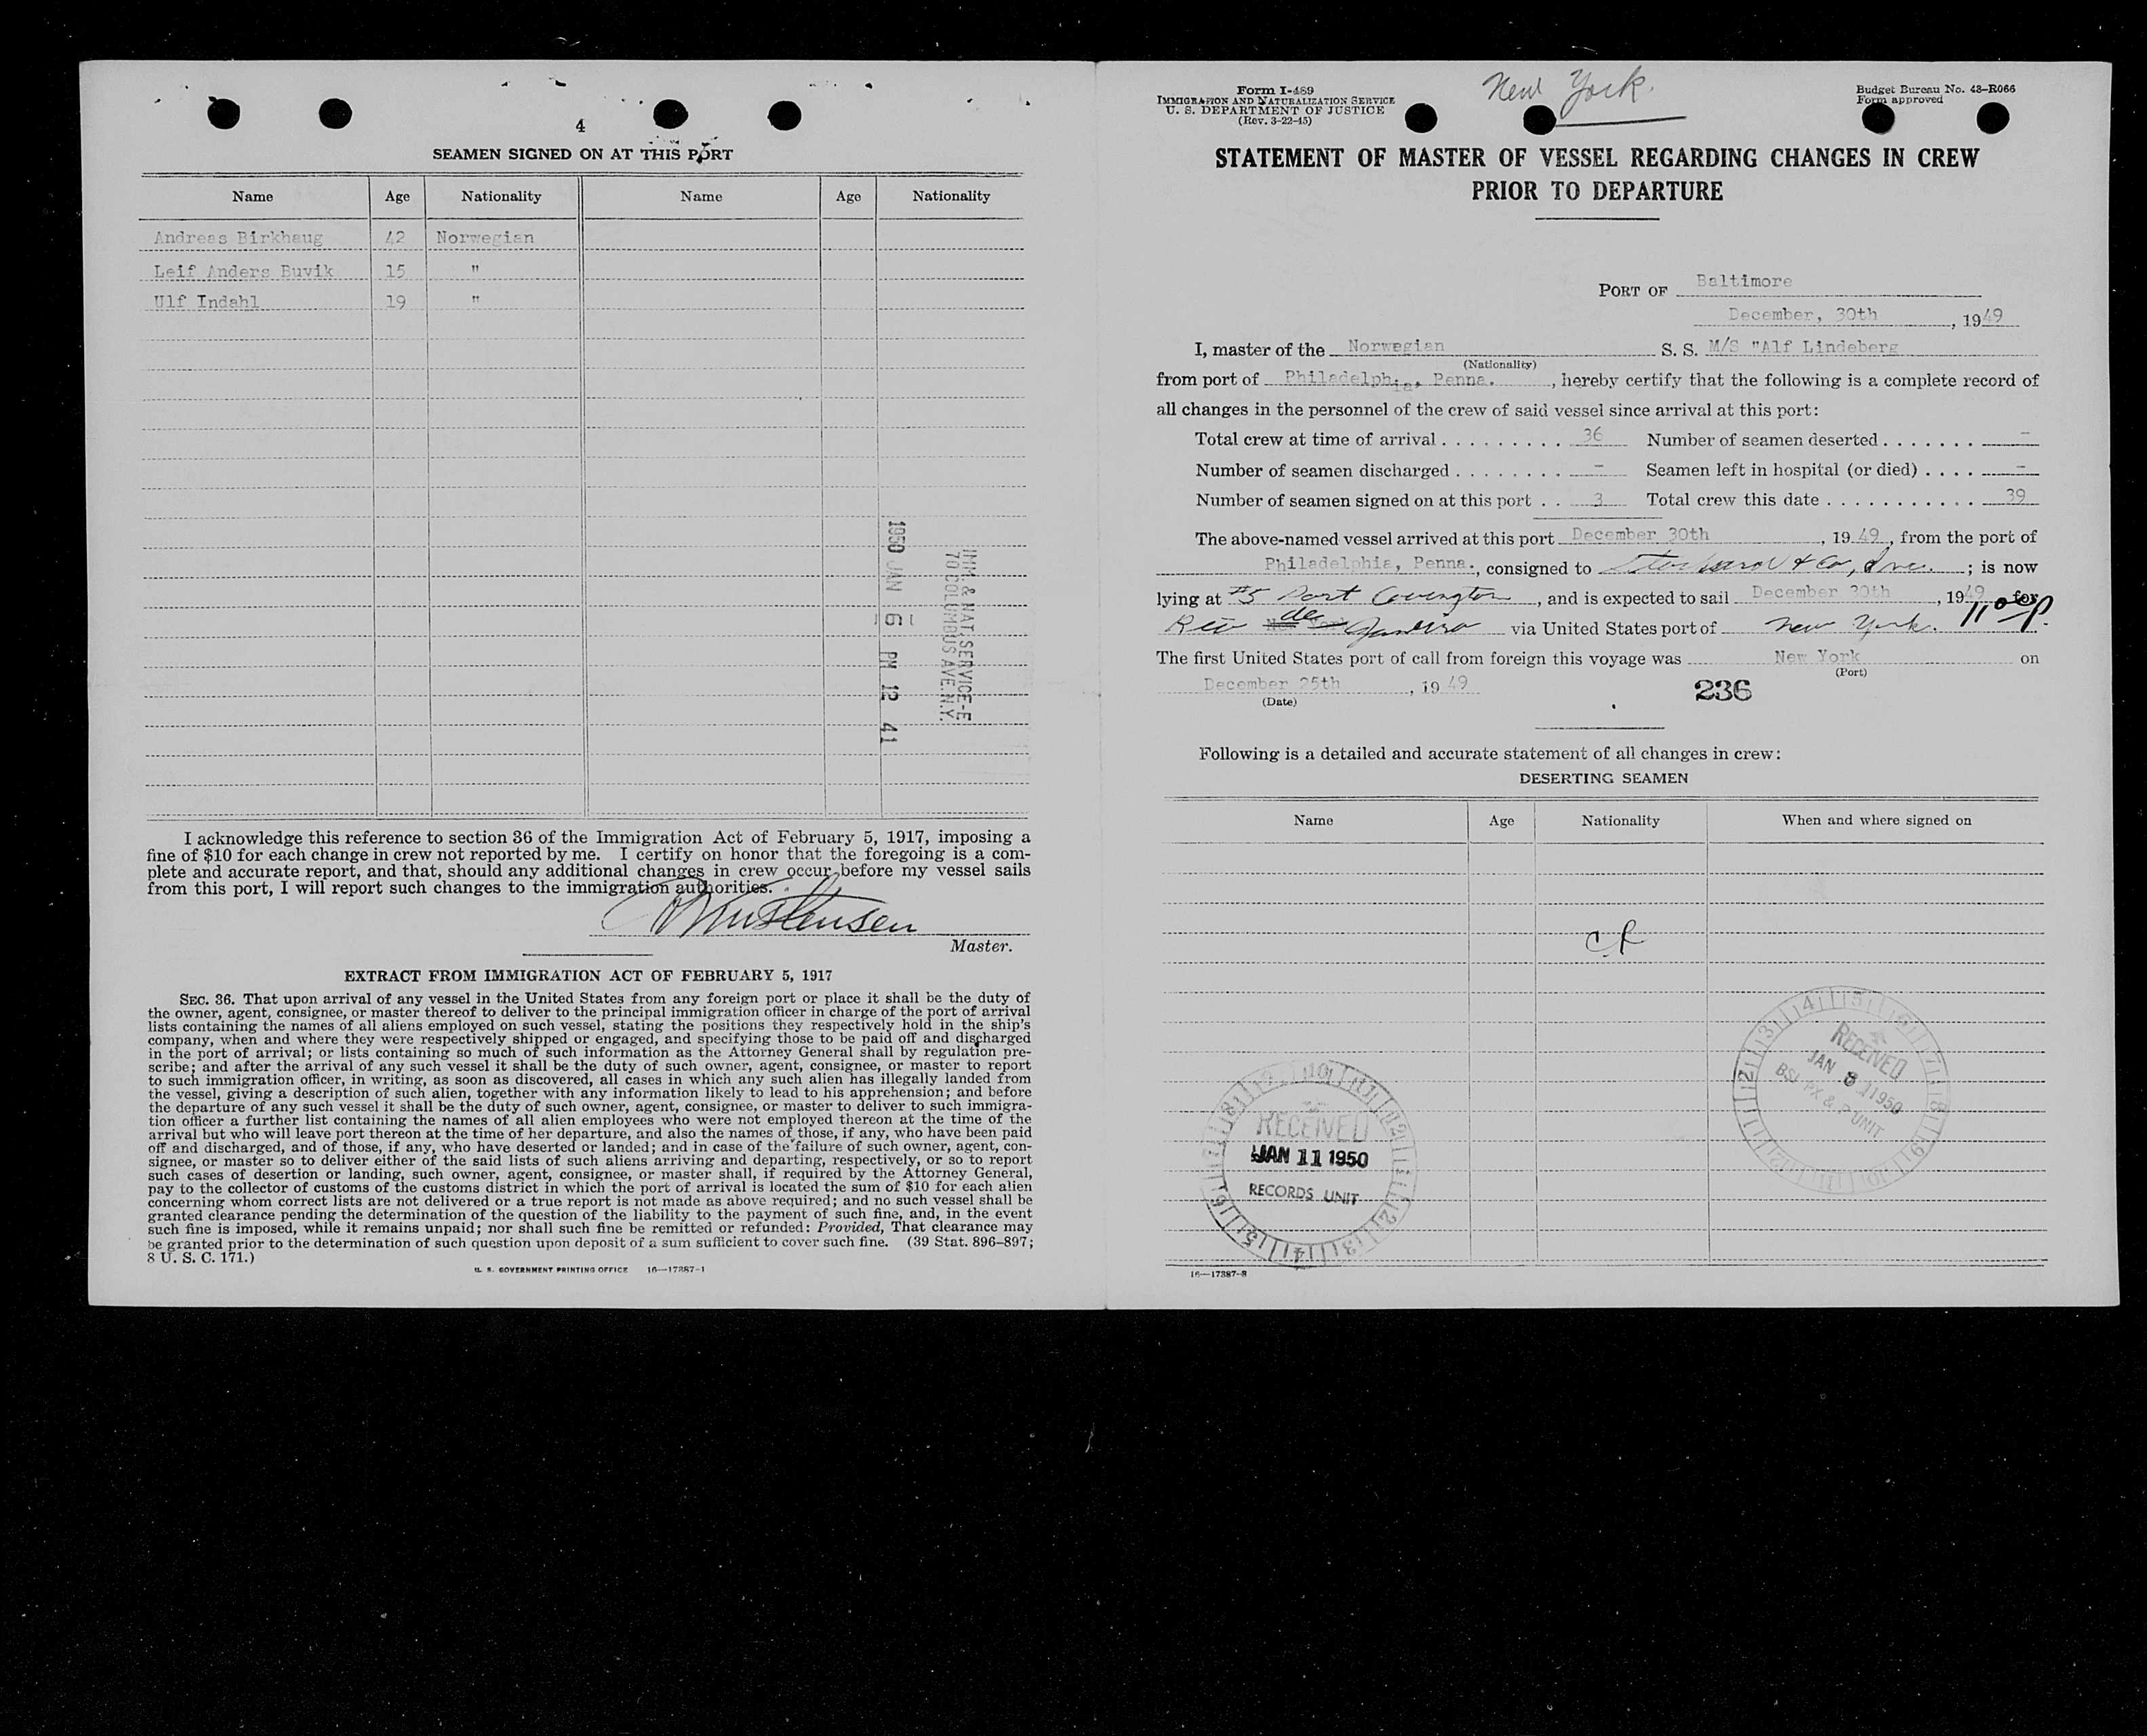 4
SEAMEN SIGNED ON AT THIS PORT
Name Age Nationality Name Age Nationality
Andreas Birkhaug 42 Norwegian
Leif Anders Buvik 15 "
Ulf Indahl 19 "
1950 JAN 6 PM 12 41
IMM. & NAT. SERVICE-E
70 COLUMBUS AVE. N.Y.
I acknowledge this reference to section 36 of the Immigration Act of February 5, 1917, imposing a
fine of $10 for each change in crew not reported by me. I certify on honor that the foregoing is a com-
plete and accurate report, and that, should any additional changes in crew occur before my vessel sails
from this port, I will report such changes to the immigration authorities.
Master.
EXTRACT FROM IMMIGRATION ACT OF FEBRUARY 5, 1917
SEC. 36. That upon arrival of any vessel in the United States from any foreign port or place it shall be the duty of
the owner, agent, consignee, or master thereof to deliver to the principal immigration officer in charge of the port of arrival
lists containing the names of all aliens employed on such vessel, stating the positions they respectively hold in the ship's
company, when and where they were respectively shipped or engaged, and specifying those to be paid off and discharged
in the port of arrival; or lists containing so much of such information as the Attorney General shall by regulation pre-
scribe; and after the arrival of any such vessel it shall be the duty of such owner, agent, consignee, or master to report
to such immigration officer, in writing, as soon as discovered, all cases in which any such alien has illegally landed from
the vessel, giving a description of such alien, together with any information likely to lead to his apprehension; and before
the departure of any such vessel it shall be the duty of such owner, agent, consignee, or master to deliver to such immigra-
tion officer a further list containing the names of all alien employees who were not employed thereon at the time of the
arrival but who will leave port thereon at the time of her departure, and also the names of those, if any, who have been paid
off and discharged, and of those, if any, who have deserted or landed; and in case of the failure of such owner, agent, con-
signee, or master so to deliver either of the said lists of such aliens arriving and departing, respectively, or so to report
such cases of desertion or landing, such owner, agent, consignee, or master shall, if required by the Attorney General,
pay to the collector of customs of the customs district in which the port of arrival is located the sum of $10 for each alien
concerning whom correct lists are not delivered or a true report is not made as above required; and no such vessel shall be
granted clearance pending the determination of the question of the liability to the payment of such fine, and, in the event
such fine is imposed, while it remains unpaid; nor shall such fine be remitted or refunded: Provided, That clearance may
be granted prior to the determination of such question upon deposit of a sum sufficient to cover such fine. (39 Stat. 896–897;
8 U. S. C. 171.)
U. S. GOVERNMENT PRINTING OFFICE 16—17387-1
Form I-489
IMMIGRATION AND NATURALIZATION SERVICE
U. S. DEPARTMENT OF JUSTICE
(Rev. 3-22-45)
New York.
Budget Bureau No. 43-R066
Form approved
STATEMENT OF MASTER OF VESSEL REGARDING CHANGES IN CREW
PRIOR TO DEPARTURE
PORT OF Baltimore
December, 30th, 1949
I, master of the Norwegian S. S. M/S "Alf Lindeberg
(Nationality)
from port of Philadelphia, Penna., hereby certify that the following is a complete record of
all changes in the personnel of the crew of said vessel since arrival at this port:
Total crew at time of arrival . . . . . . . . . 36 Number of seamen deserted . . . . . . . -
Number of seamen discharged . . . . . . . . - Seamen left in hospital (or died) . . . . -
Number of seamen signed on at this port . . 3 Total crew this date . . . . . . . . . . . . 39
The above-named vessel arrived at this port December 30th, 1949, from the port of
Philadelphia, Penna., consigned to & Co, Inc. ; is now
lying at #5 Port Covington, and is expected to sail December 30th, 1949 for
Rio de Janeiro via United States port of New York. 11 00 P.
The first United States port of call from foreign this voyage was New York on
(Port)
December 25th, 1949
(Date)
236
Following is a detailed and accurate statement of all changes in crew:
DESERTING SEAMEN
Name Age Nationality When and where signed on
RECEIVED
JAN 11 1950
RECORDS UNIT
RECEIVED
JAN 1950
BSI PX & P UNIT
16—17387-3